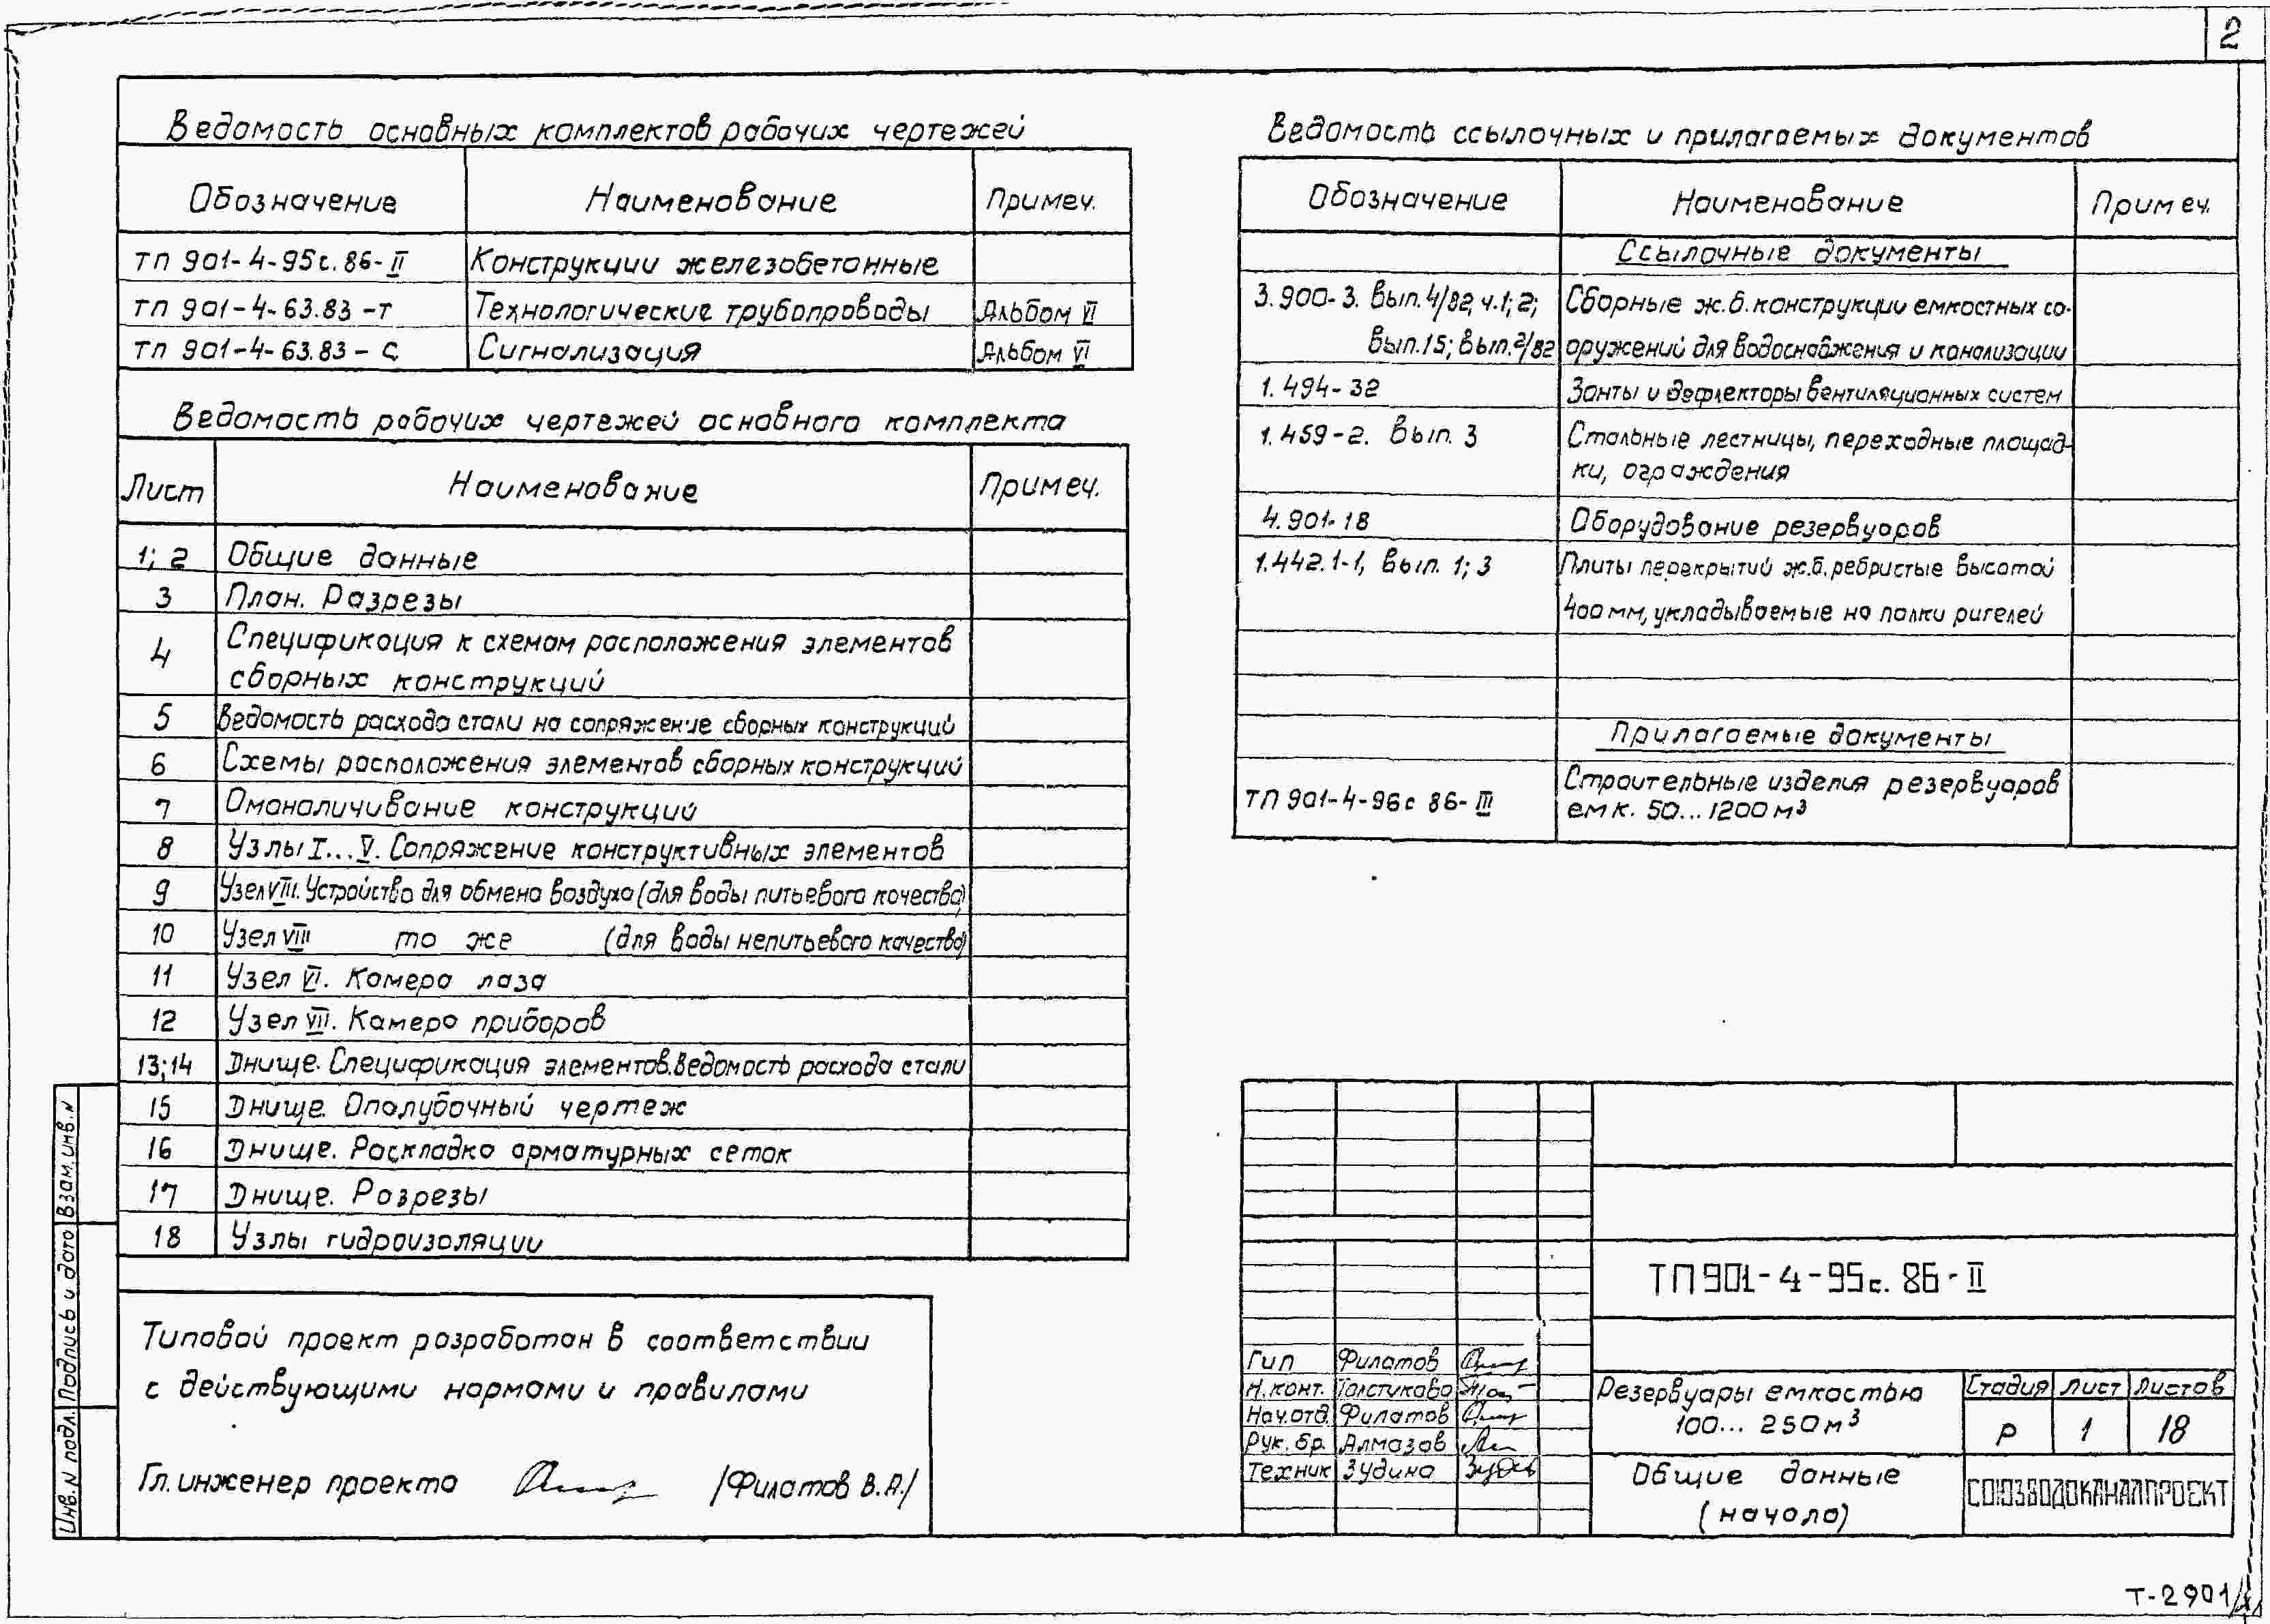 2
Ведомость основных комплектов рабочих чертежей
Обозначение Наименование Примеч.
ТП 901-4-95с.86-II Конструкции железобетонные
ТП 901-4-63.83-Т Технологические трубопроводы Альбом VI
ТП 901-4-63.83-С Сигнализация Альбом VI
Ведомость рабочих чертежей основного комплекта
Лист Наименование Примеч.
1; 2 Общие данные
3 План. Разрезы
4 Спецификация к схемам расположения элементов
сборных конструкций
5 Ведомость расхода стали на сопряжение сборных конструкций
6 Схемы расположения элементов сборных конструкций
7 Омоноличивание конструкций
8 Узлы I...V. Сопряжение конструктивных элементов
9 Узел VIII. Устройство для обмена воздуха (для воды питьевого качества)
10 Узел VIII то же (для воды непитьевого качества)
11 Узел VI. Камера лаза
12 Узел VII. Камера приборов
13;14 Днище. Спецификация элементов. Ведомость расхода стали
15 Днище. Опалубочный чертеж
16 Днище. Раскладка арматурных сеток
17 Днище. Разрезы
18 Узлы гидроизоляции
Типовой проект разработан в соответствии
с действующими нормами и правилами
Гл. инженер проекта /Филатов В.А./
Ведомость ссылочных и прилагаемых документов
Обозначение Наименование Примеч.
Ссылочные документы
3.900-3. Вып.4/82, ч.1; 2; Сборные ж.б. конструкции емкостных со-
вып.15; вып.2/82 оружений для водоснабжения и канализации
1.494-32 Зонты и дефлекторы вентиляционных систем
1.459-2. Вып. 3 Стальные лестницы, переходные площад-
ки, ограждения
4.901-18 Оборудование резервуаров
1.442.1-1, Вып. 1; 3 Плиты перекрытий ж.б. ребристые высотой
400 мм, укладываемые на полки ригелей
Прилагаемые документы
ТП 901-4-96с 86-III Строительные изделия резервуаров
емк. 50...1200 м³
ТП 901-4-95с. 86-II
Гип Филатов
Н.конт. Толстикова
Нач.отд. Филатов
Рук. бр. Алмазов
Техник Зудина
Резервуары емкостью
100... 250 м³
Стадия Лист Листов
Р 1 18
Общие данные
(начало)
СОЮЗВОДОКАНАЛПРОЕКТ
Инв. N подл. Подпись и дата Взам. инв. N
Т-2901